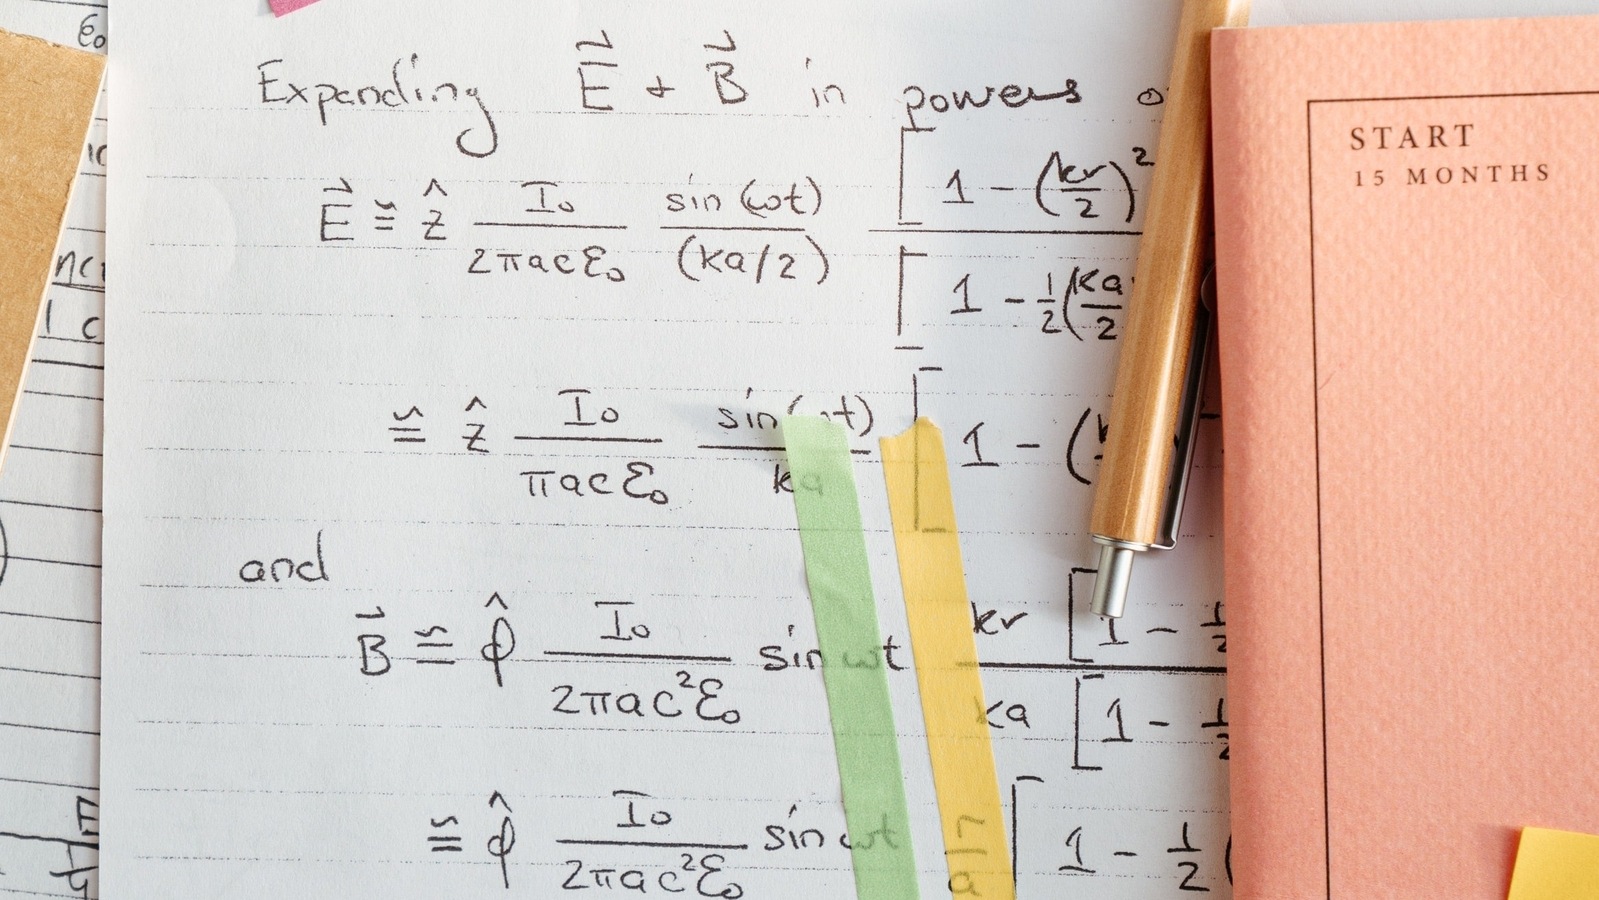 Expanding E⃗ + B⃗ in powers
E⃗ ≅ ẑ I₀/(2πacε₀) sin(ωt)/(ka/2) [1 - (kr/2)² / [1 - 1/2(ka/2
≅ ẑ I₀/(πacε₀) sin(ωt)/ka [1 - (
and
B⃗ ≅ φ̂ I₀/(2πac²ε₀) sin ωt kr[1 - 1/2 / ka[1 - 1/2
≅ φ̂ I₀/(2πac²ε₀) sin ωt r/a [1 - 1/2 (
START
15 MONTHS
ε₀